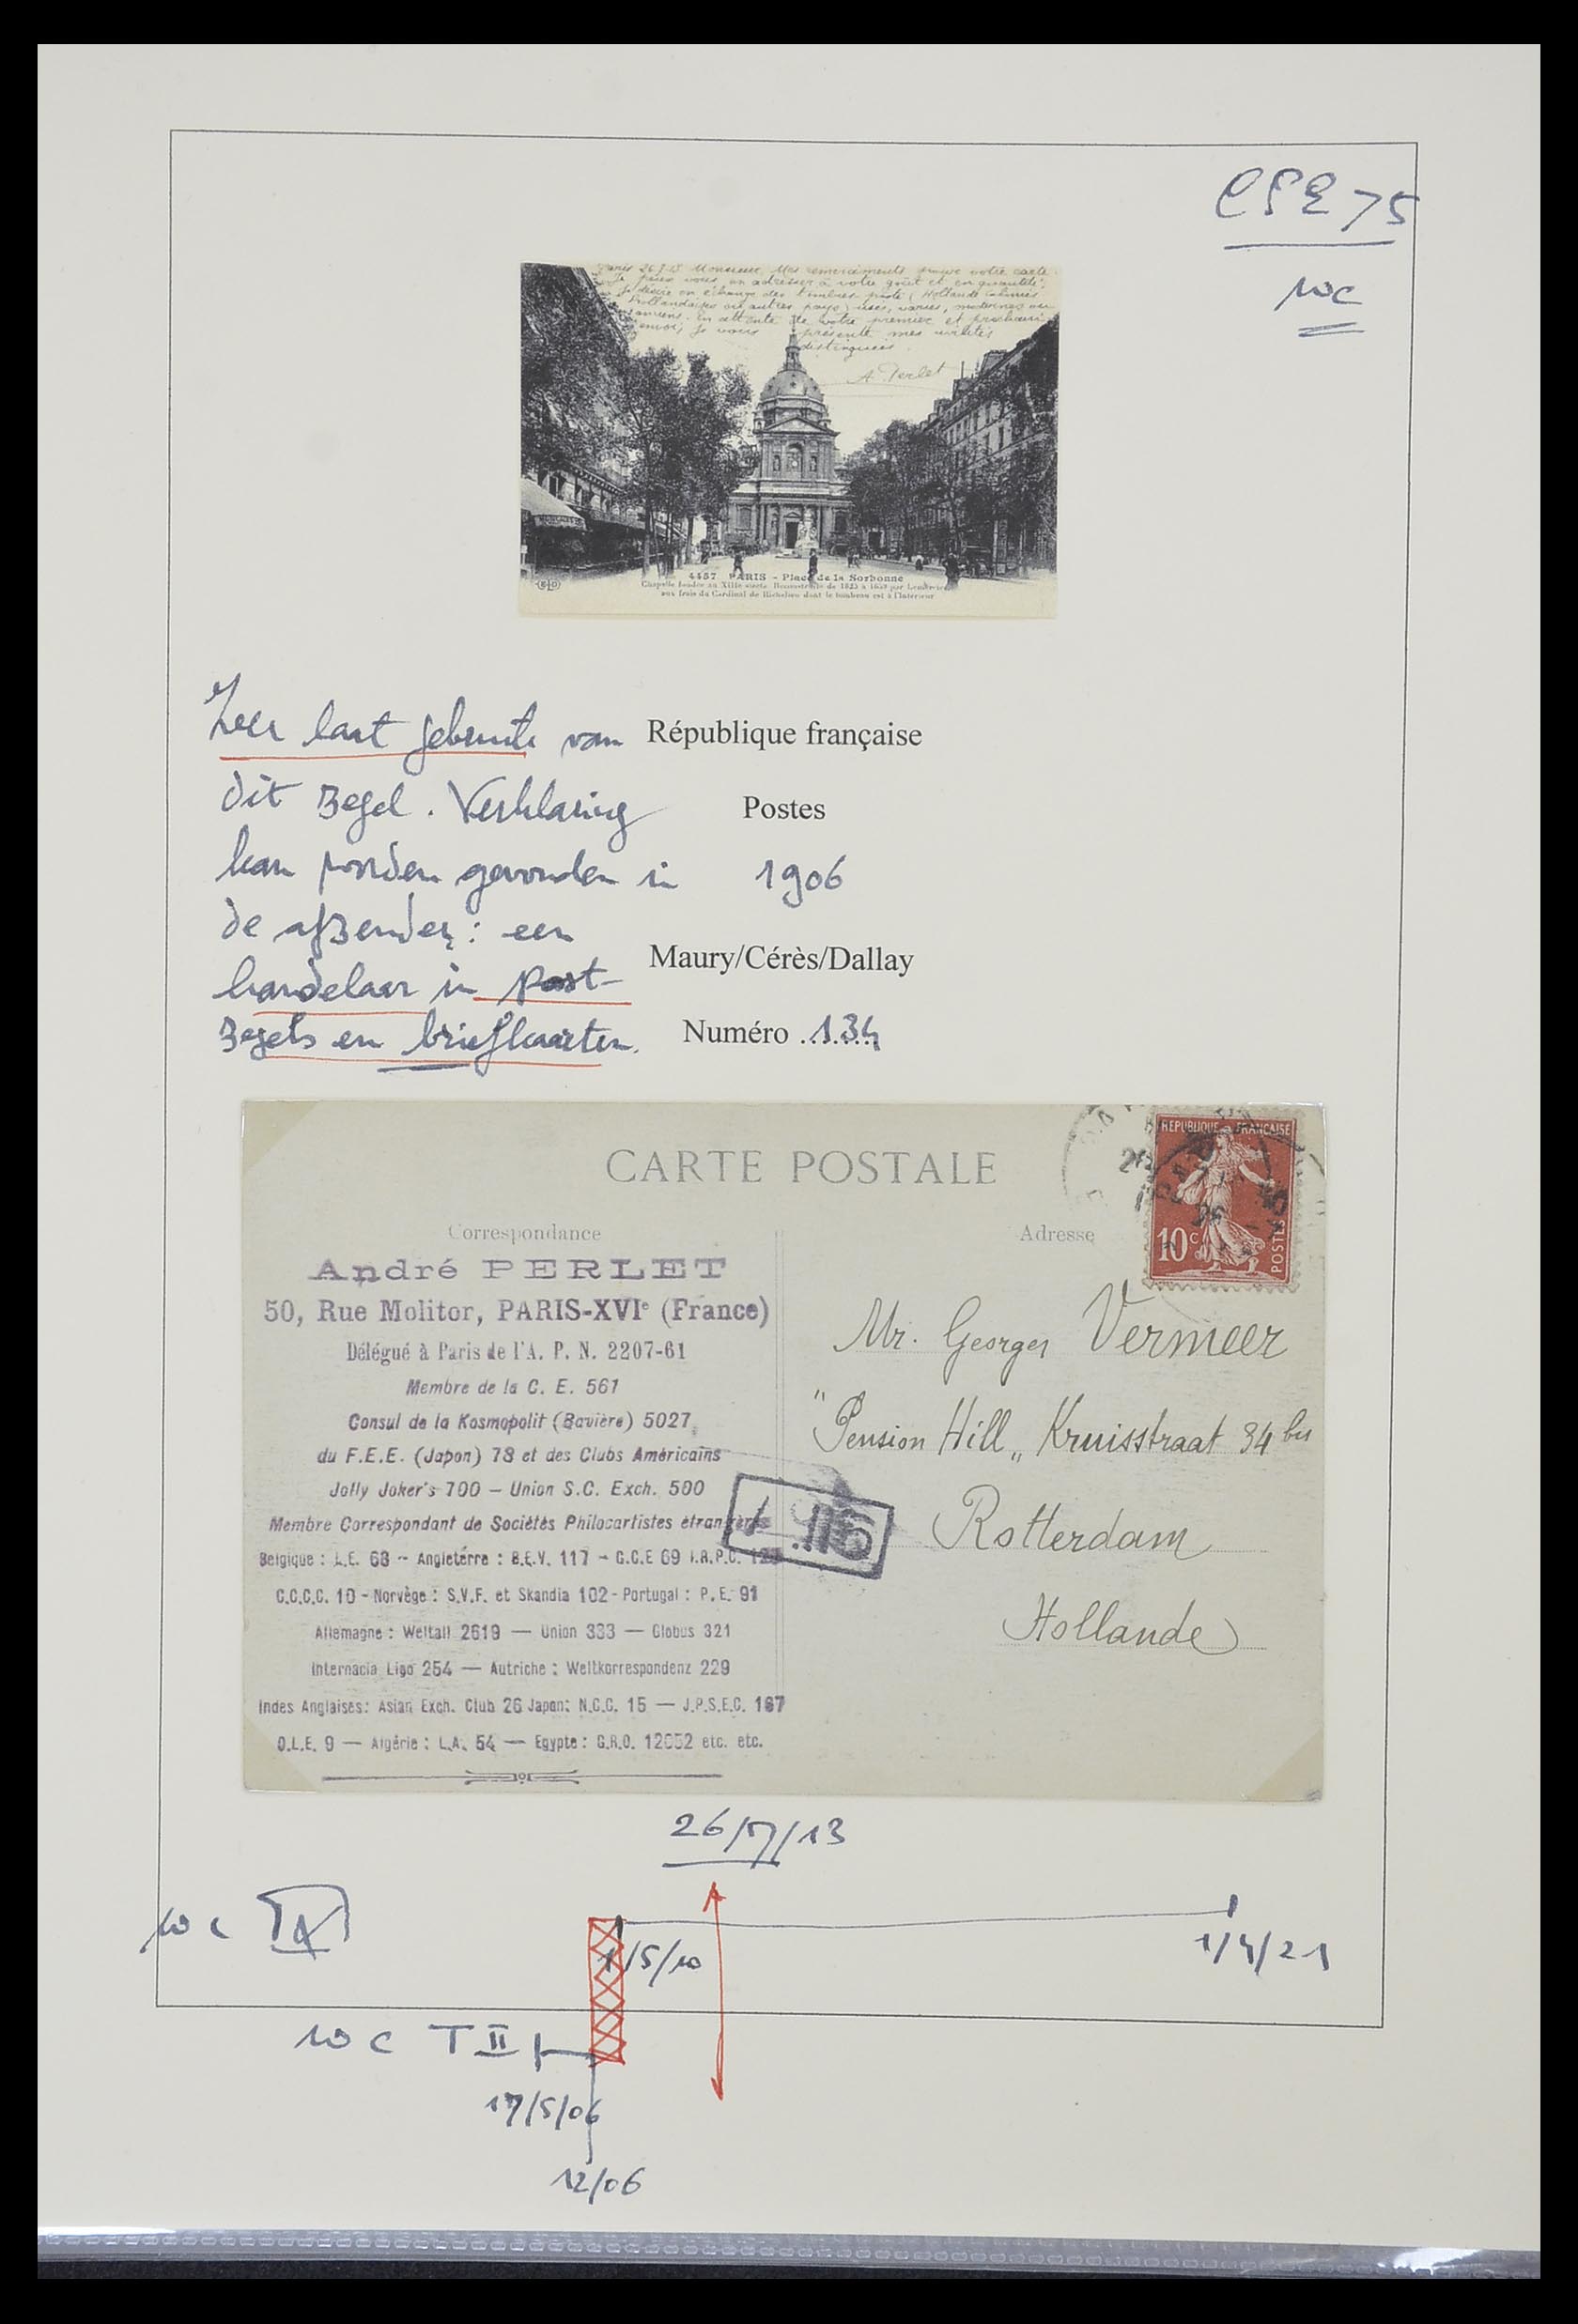 75
10c
Paris 26.7.13 Monsieur, Mes remerciements pour votre carte.
Je puis vous en adresser à votre goût et en quantité;
Je désire en échange des timbres poste (Hollande colonies
hollandaises ou autres pays) usés, variés, modernes ou
anciens. En attente de votre premier et prochain
envoi, je vous présente mes civilités
distinguées.
A. Perlet
4457 PARIS - Place de la Sorbonne
Chapelle fondée au XIIIe siècle. Reconstruite de 1635 à 1659 par Lemercier
aux frais du Cardinal de Richelieu dont le tombeau est à l'intérieur
ELD
Zeer laat gebruik van
dit zegel. Verklaring
kan worden gevonden in
de afzender: een
handelaar in post-
zegels en briefkaarten.
République française
Postes
1906
Maury/Cérès/Dallay
Numéro 134
CARTE POSTALE
Correspondance
Adresse
REPUBLIQUE FRANÇAISE
10c
POSTES
André PERLET
50, Rue Molitor, PARIS-XVIe (France)
Délégué à Paris de l'A. P. N. 2207-61
Membre de la C. E. 561
Consul de la Kosmopolit (Bavière) 5027,
du F.E.E. (Japon) 78 et des Clubs Américains
Jolly Joker's 700 — Union S.C. Exch. 500
Membre Correspondant de Sociétés Philocartistes étrangères
Belgique : L.E. 68 - Angleterre : B.E.V. 117 - G.C.E 69 I.R.P.C.
C.C.C.C. 10 - Norvège : S.V.F. et Skandia 102 - Portugal : P.E. 91
Allemagne : Weltall 2619 — Union 333 — Globus 321
Internacia Ligo 254 — Autriche : Weltkorrespondenz 229
Indes Anglaises: Asian Exch. Club 26 Japan: N.C.C. 15 — J.P.S.E.C. 167
O.L.E. 9 — Algérie : L.A. 54 — Egypte : G.R.O. 12652 etc. etc.
Mr. Georges Vermeer
"Pension Hill" Kruisstraat 34 bis
Rotterdam
Hollande
26/7/13
10 c
1/5/10
1/4/21
10 c T II
17/5/06
12/06